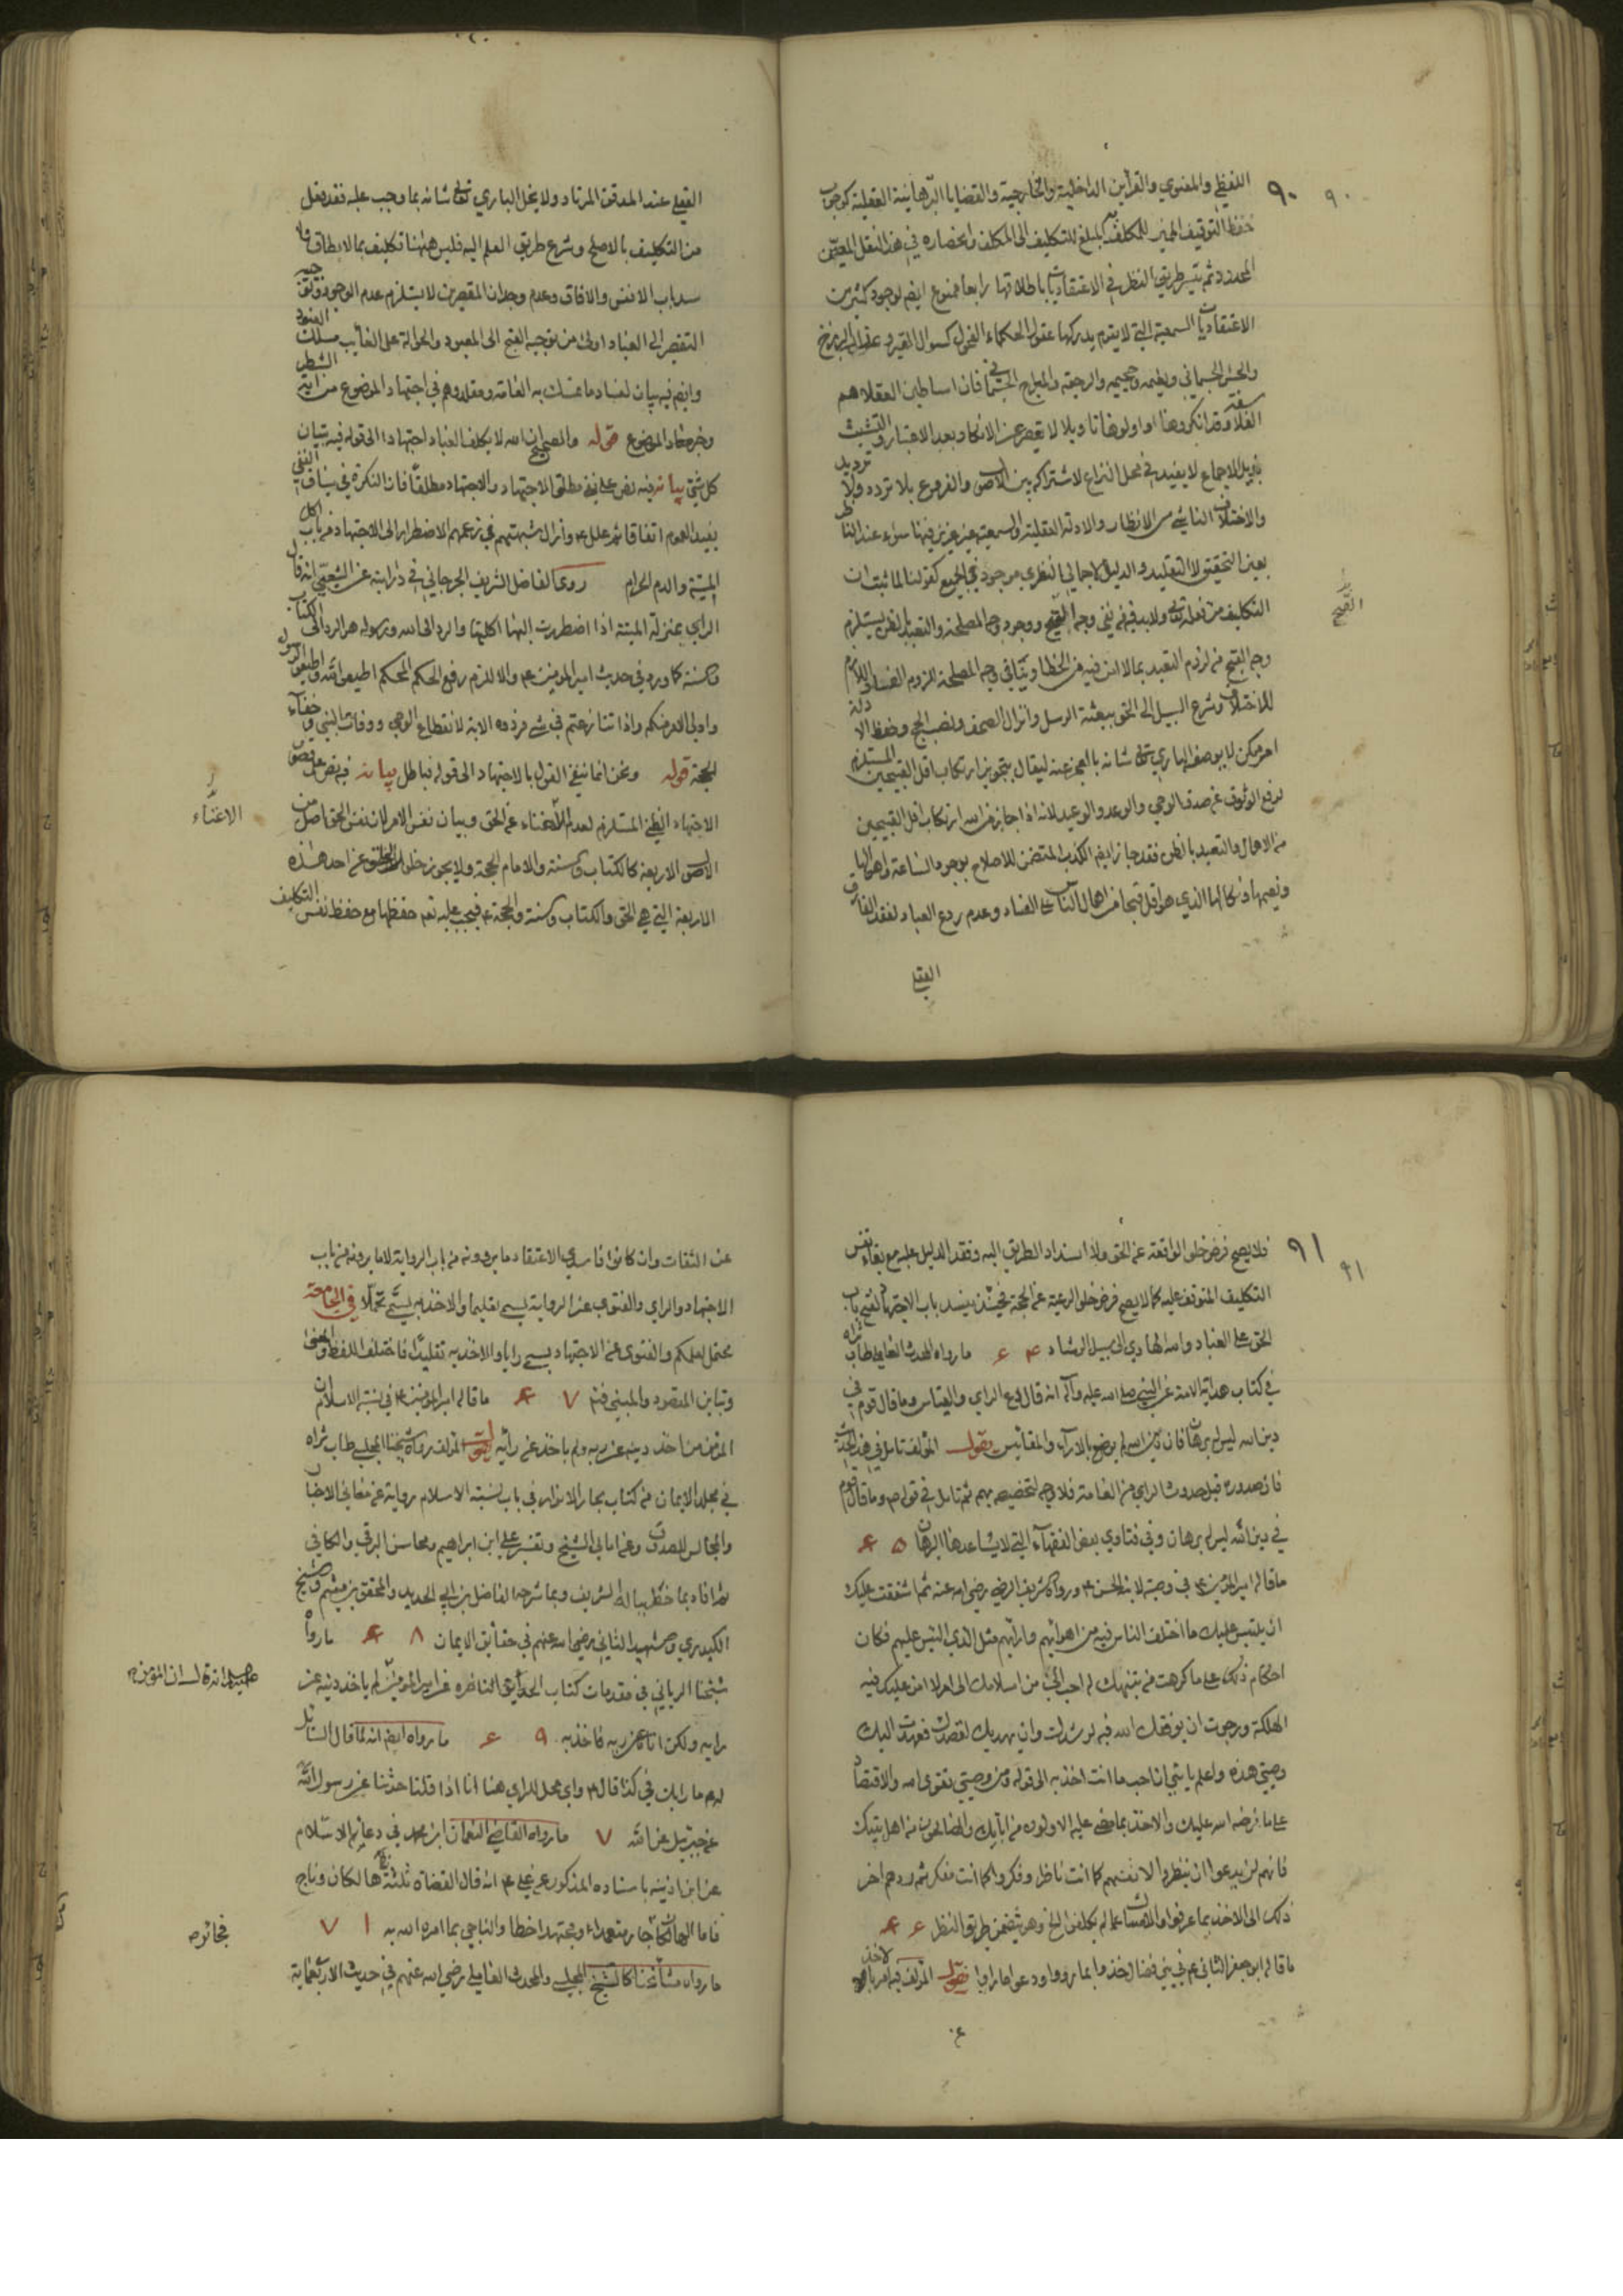 ٩٠ ٩٠
اللفظي والمعنوي والقرآين الداخلية والخارجية والقضايا البرهانية العقلية كوجوب
حفظ التوقيف المميز للمكلف به كمبلغ للتكليف الى المكلف وانحصاره في هذا النقل المعين
المحدد ثم تيسر طريق النظر في الاعتقاديات باطلاقها رابعا ممنوع ايضم لوجود كثير من
الاعتقاديات السمعية التي لا يقوم يدركها عقول الحكماء الفحول كسوال القبر و عذاب البرزخ
والحشر الجسماني ونعيمه وجحيمه والرجعة والمعراج الجسماني فان اساطين العقلا هم
الفلاسفة وقد انكروها او اولوها تاويلا لا يقصر عن الانكار وبعد الاعتبار والتشبث
بذيل الاجماع لا يفيد في محل النزاع لاشتراكه بين الاصول والفروع بلا تردد ولا ترديد
والاختلاف الناشي من الانظار والادلة العقلية والسمعية غير عزيز فيها سواء عند الناظر
بعين التحقيق لا التقليد والدليل الاجمالي النظري موجود في الجميع كقولنا لما ثبت ان
التكليف من فعله تعالى ولابد فيه من نفي وجه القبح ووجود وجه المصلحة والتعبد بالظن يستلزم
وجه القبح من لزوم التعبد بمالا امن فيه من الخطا وينافي وجه المصلحة للزوم الفساد اللازم
للاختلاف وشرع السبيل الى الحق ببعثة الرسل وانزال الصحف ونصب الحجج وحفظ الادلة
امر ممكن لا يوصف الباري تعالى شانه بالعجز عنه ليقال بتجويز ارتكاب اقل القبيحين المستلزم
لرفع الوثوق عن صدق الوحي والوعد والوعيد لانه اذا جاز من الله ارتكاب اقل القبيحين
من الاهمال والتعبد بالظن فقد جاز ايضم الكذب المتضمن للاصلاح بوجود الساعة واهوالها
ونعيمها ونكالها الذي هو اقل قبحا من اهمال الناس على الفساد وعدم ردع العباد لفقد الفارق
القبح
القطعي
القطعي عند المدقق المرتاد ولا يخل الباري تعالى شانه بما وجب عليه فقد فعل
من التكليف بالاصلح وشرع طريق العلم اليه فليس ههنا تكليف بما لا يطاق ولا
سد باب الانفس والافاق وعدم وجدان المقصرين لا يستلزم عدم الوجود وتوجيه
التقصير الى العباد اولى من توجيه القبح الى المعبود والحوالة على الغايب مسلك العنود
وايضم فيه بيان لفساد ما تمسك به العامة ومقلدوهم في اجتهاد الموضوع من اية الشطر
وخبر معاذ الموضوع قوله والصحيح ان الله لا يكلف العباد اجتهادا الى قوله فيه تبيان
كل شيئ بيانه فيه نص على نفي مطلق الاجتهاد والاجتهاد مطلقا فان النكرة في سياق النفي
يفيد العموم اتفاقا ثم علل ع وازال شبهتهم في زعمهم الاضطرار الى الاجتهاد من باب اكل
الميتة والدم الحرام روى الفاضل الشريف الجرجاني في درايته عن الشعبي انه قال
الراي بمنزلة الميتة اذا اضطررت اليها اكلتها والرد الى الله ورسوله هو الرد الى الكتاب
والسنة كما ورد في حديث امير المومنين ع والا للزم رفع الحكم المحكم اطيعوا الله واطيعوا الرسول
واولي الامر منكم واذا تنازعتم في شي فردوه الاية لانقطاع الوحي ووفات النبي وخفاء
الحجة قوله ونحن انما ننفي القول بالاجتهاد الى قوله فباطل بيانه فيه نص على نقض
الاجتهاد الظني المستلزم لعدم الاغناء عن الحق وبيان نفس الامر لان نفس الحق اصل من
الاصول الاربعة كالكتاب والسنة والامام الحجة ولا يجوز خلو الخلق عن احد هذه
الاربعة التي هي الحق والكتاب والسنة والحجة ع فيجب عليه تعم حفظها مع حفظ نفس التكليف
الاغناء
٩١ ٩١
فلا يصح فرض خلو الواقعة عن الحق ولا انسداد الطريق اليه وفقد الدليل عليه مع بقاء نفس
التكليف المتوقف عليه كما لا يصح فرض خلو الرعية عن الحجة فحينئذ ينسد باب الاجتهاد لفتح باب
الحق على العباد والله الهادي الى سبيل الرشاد ٤ ٤ ما رواه المحدث العاملي طاب ثراه
في كتاب هداية الامة عن النبي صلى الله عليه وآله انه قال دع الراي والقياس وما قال قوم في
دين الله ليس له برهان فان دين الله لم يوضع بالاراء والمقائيس يقول المؤلف تامل في هذا الحديث
فان صدوره قبل حدوث الراي من العامة فلا وجه لتخصيصه بهم ثم تامل في قوله ص وما قال قوم
في دين الله ليس له برهان وفي فتاوي بعض الفقهاء التي لا يساعدها البرهان ٥ ٤
ما قاله امير المؤمنين ع في وصيته لابنه الحسن ع ورواه الشريف الرضي رضي الله عنه ثم اشفقت عليك
ان يلتبس عليك ما اختلف الناس فيه من اهوائهم وارائهم مثل الذي التبس عليهم فكان
احكام ذلك على ما كرهت من تنبيهك له احب الي من اسلامك الى امر لا امن عليك فيه
الهلكة ورجوت ان يوفقك الله فيه لرشدك وان يهديك لقصدك فعهدت اليك
وصيتي هذه واعلم يا بني ان احب ما انت اخذ به الى قوله من وصيتي تقوى الله والاقتصار
على ما فرضه الله عليك والاخذ بما مضى عليه الاولون من ابائك والصالحون من اهل بيتك
فانهم لم يدعوا ان ينظروا لانفسهم كما انت ناظر وفكروا كما انت مفكر ثم ردهم اخر
ذلك الى الاخذ بما عرفوا والامساك عما لم يكلفوا الخ وهو يتضمن طريق النظر ٤ ٤
ما قاله ابو جعفر الثاني ع في بني فضال خذوا بما رووا ودعوا ما راوا يقول المؤلف فيه امر بالاخذ
عن
عن الثقات وان كانوا فاسدي الاعتقاد ما يروونه من باب الرواية لا ما يرونه من باب
الاجتهاد والراي والفتوى عن الرواية يسمى تعليما والاخذ به يسمى تحملا في الجامعة
يحتمل لعلكم والفتوى عن الاجتهاد يسمى رايا والاخذ به تقليدا فاختلف اللفظ والمعنى
وتباين المقصود والمبنى فتم ٧ ٤ ما قاله امير المؤمنين ع في نسبة الاسلام ان
المؤمن من اخذ دينه عن ربه ولم ياخذ عن رأيه يقول المؤلف رواه شيخنا المجلسي طاب ثراه
في مجلد الايمان من كتاب بحار الانوار في باب نسبة الاسلام رواية عن معاني الاخبار
والمجالس للصدوق وعن امالي الشيخ وتفسير علي ابن ابراهيم ومحاسن البرقي والكافي
ثم افاد بما خطر بباله الشريف وبما شرحه الفاضل بن ابي الحديد والمحقق بن ميثم والشيخ
الكيدري والشهيد الثاني رضي الله عنهم في حقايق الايمان ٨ ٤ ما رواه
شيخنا الرباني في مقدمات كتاب الحدائق الناضرة عن امير المؤمنين لم ياخذ دينه عن
رايه ولكن اتاه عن ربه فاخذ به ٩ ٤ ما رواه ايضم انه لما قال السائل
له ع ما رايك في كذا قال ع واي محل للراي هنا انا اذا قلنا حدثنا عن رسول الله
عن جبرئيل عن الله ٧ ما رواه القاضي النعمان ابن محمد في دعائم الاسلام
عن ابن اذينه باسناده المذكور عن علي ع انه قال القضاة ثلثة هالكان وناج
فاما الهالكان فجائر جار متعمدا ومجتهد اخطا والناجي بما امره الله به ١ ٧
ما رواه مشائخنا كالشيخ المجلسي والمحدث العاملي رضي الله عنهم في حديث الاربعمائة
فجائره